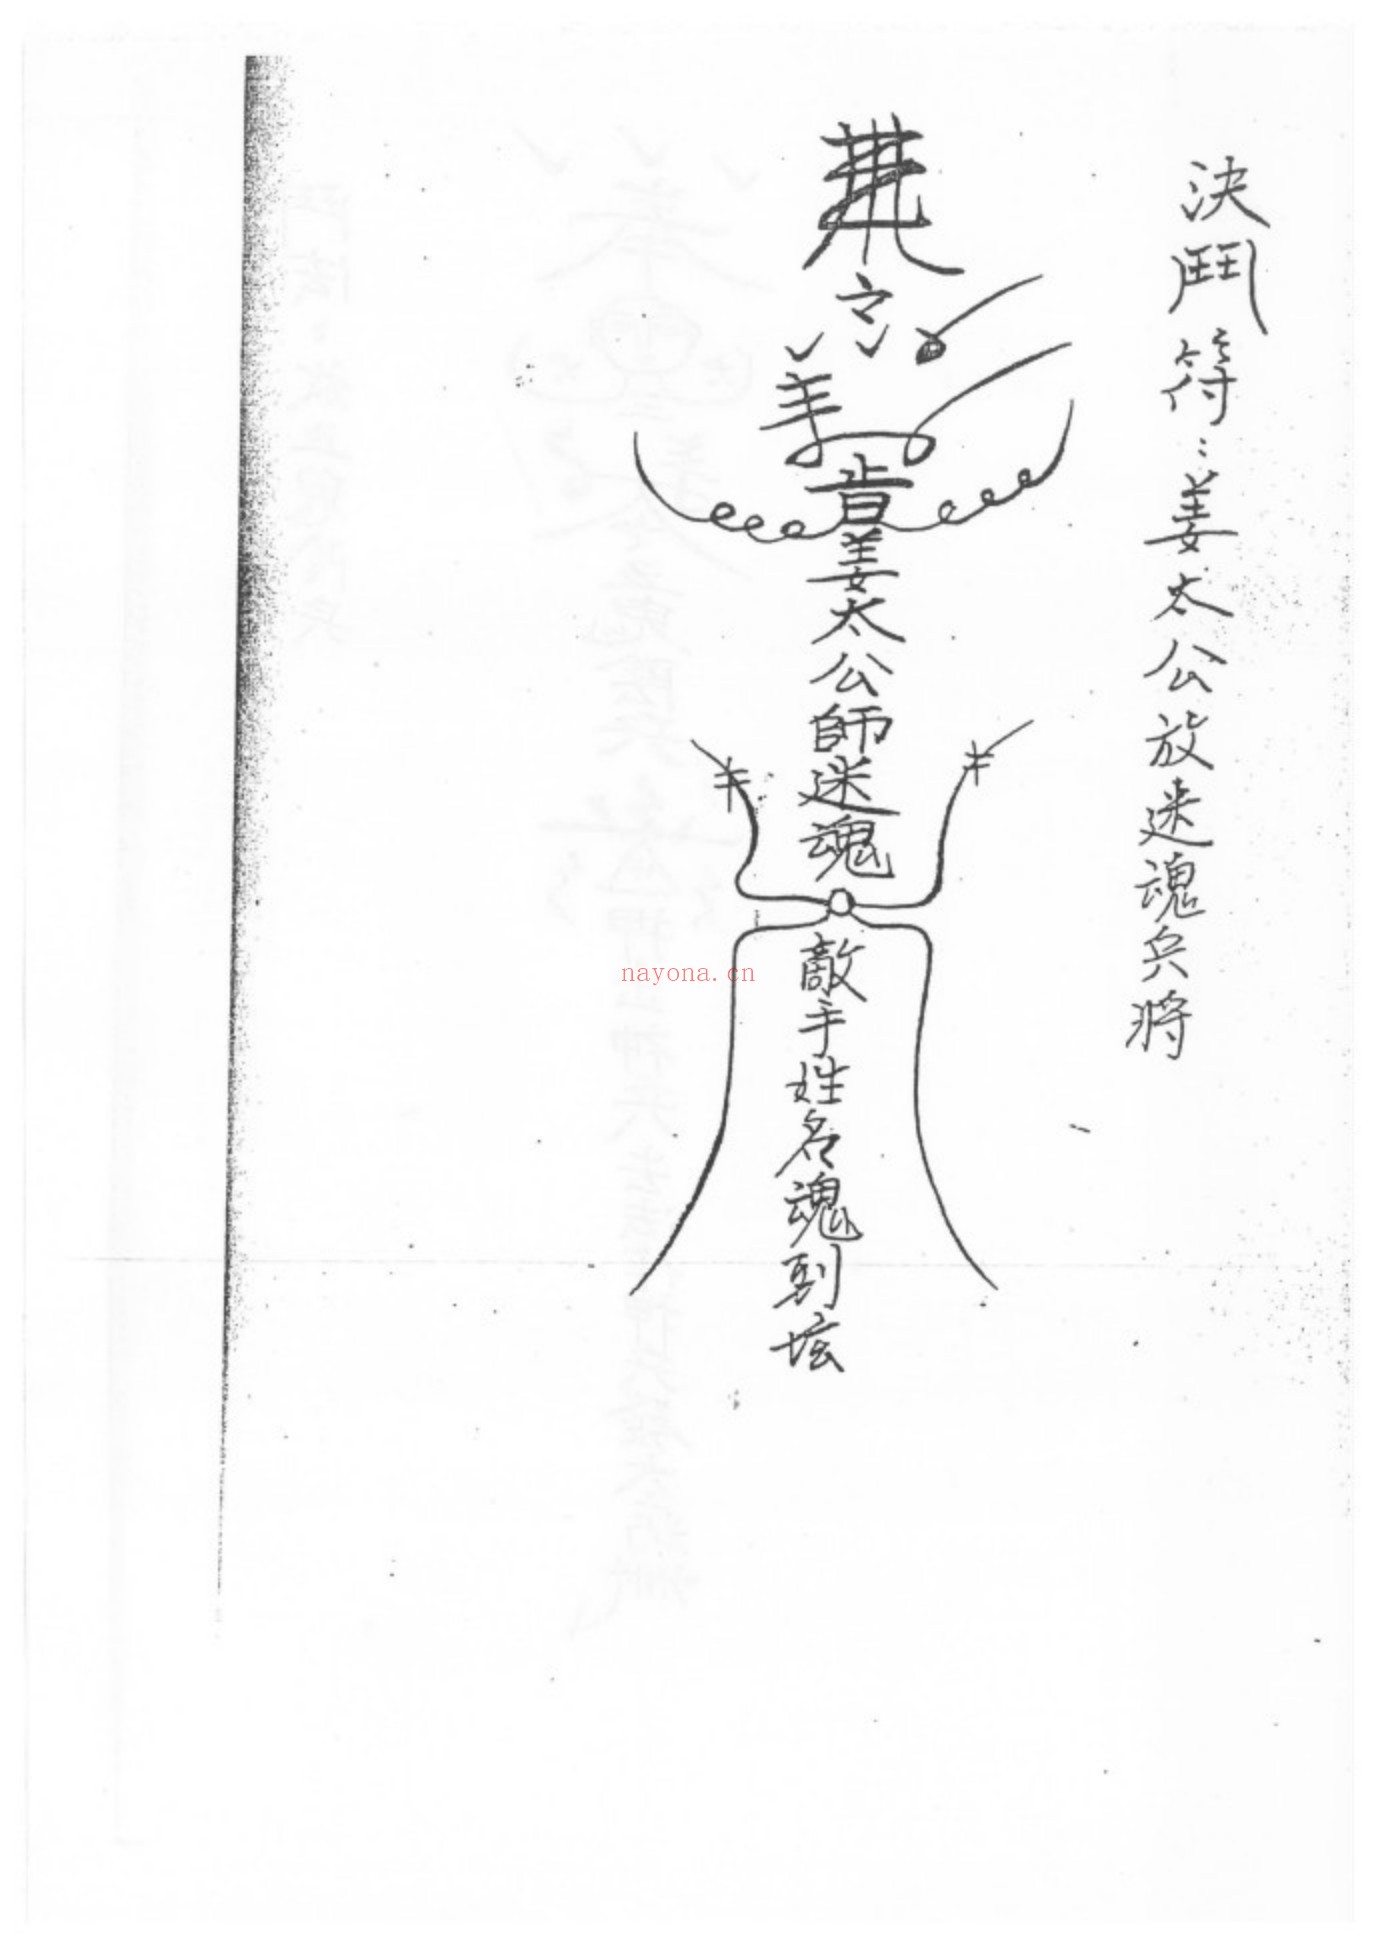 決鬥符：姜太公放迷魂兵將
姜太公師迷魂
敵手姓名魂到坛
nayona.cn